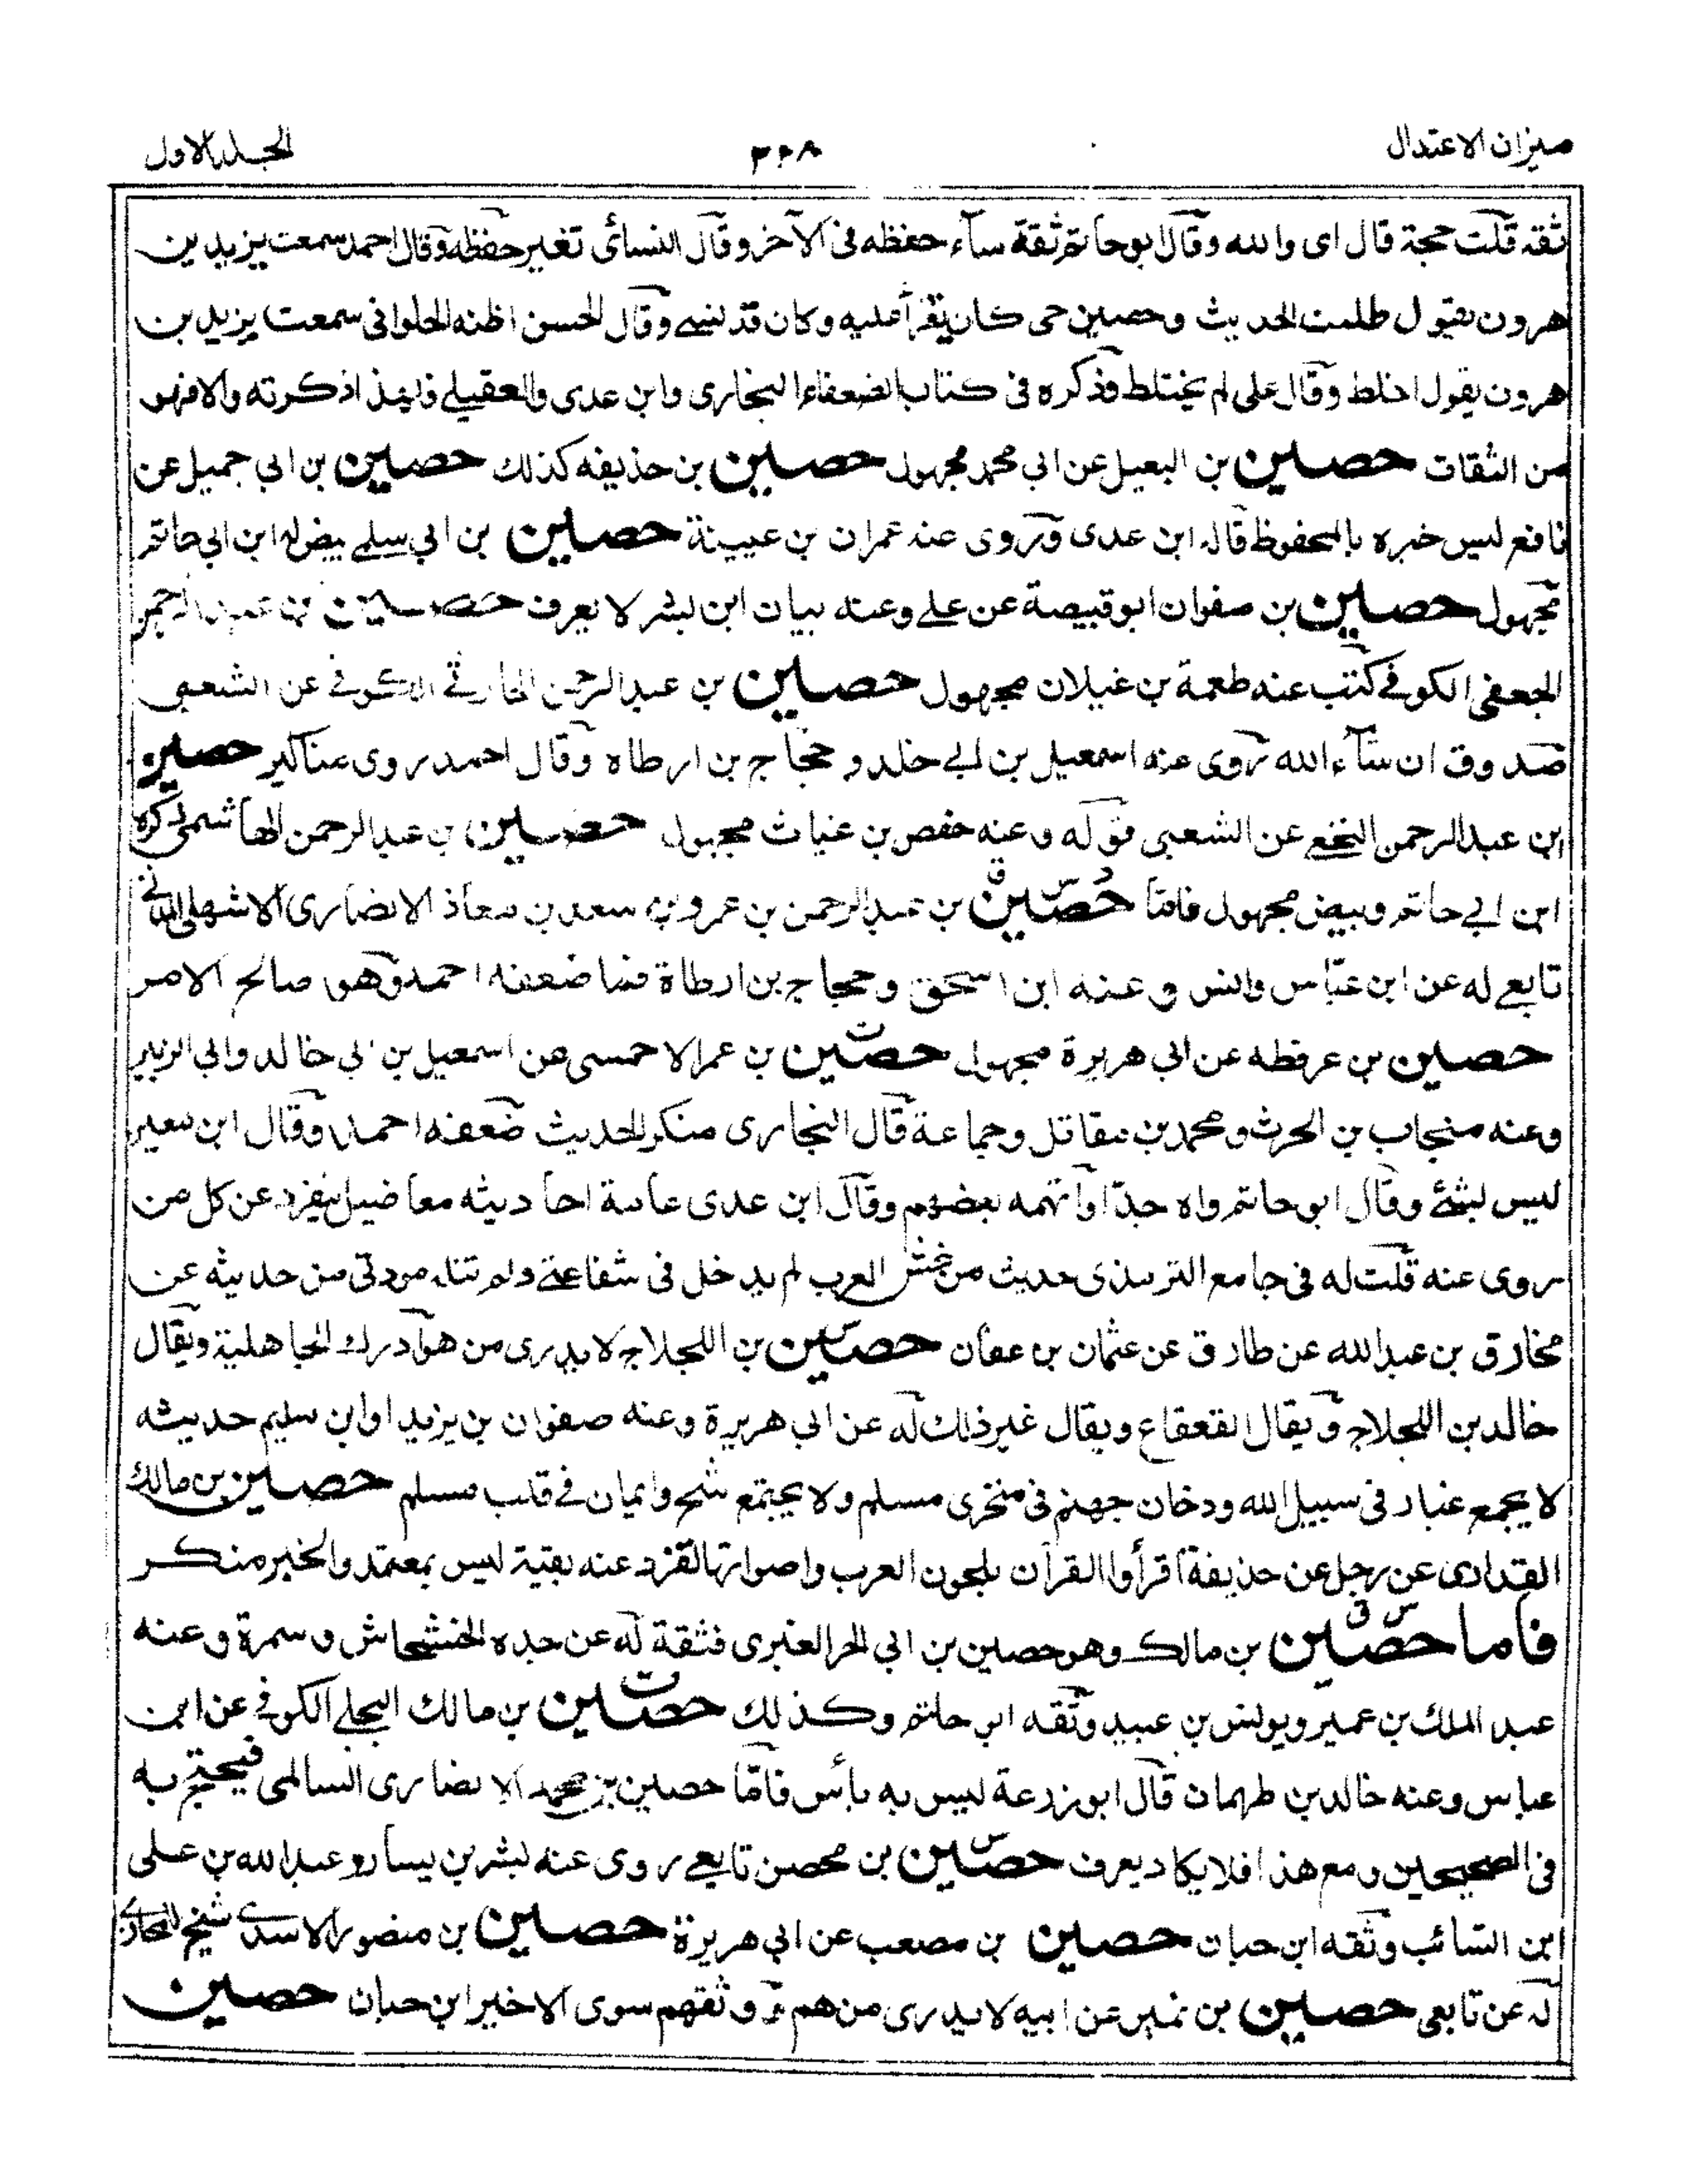 ميزان الاعتدال
٣٦٨
المجلد الاول
ثقه قلت حجة قال اى والله وقال ابوحاتم ثقة سآء حفظه فى الآخر وقال النسائى تغير حفظه وقال احمد سمعت يزيد بن
هرون يقول طلبت الحديث وحصين حى كان يقرأ عليه وكان قد نسى وقال الحسن اظنه الحلوانى سمعت يزيد بن
هرون يقول اختلط وقال على لم يختلط وذكره فى كتاب الضعفاء البخارى وابن عدى والعقيلے فلهذا ذكرته والا فهو
من الثقات حصين بن البعيل عن ابى محمد مجهول حصين بن حذيفه كذلك حصين بن ابى جميل عن
نافع ليس خبره بالمحفوظ قاله ابن عدى وروى عنه عمران بن عيينة حصين بن ابي سلمے بيض له ابن ابى حاتم
مجهول حصين بن صفوان ابو قبيصة عن علے وعنه بيان ابن بشر لا يعرف حصين بن عبد الرحمن
الجعفى الكوفے كتب عنه طعمة بن غيلان مجهول حصين بن عبد الرحمن الحارثے الكوفے عن الشعبى
صدوق ان شآء الله روى عنه اسمعيل بن ابے خلد و حجاج بن ارطاه وقال احمد روى مناكير حصين
ابن عبد الرحمن النخعے عن الشعبى قوله وعنه حفص بن غياث مجهول حصين بن عبد الرحمن الهاشمى ذكره
ابن ابے حاتم وبيض مجهول فاما حصين بن عبد الرحمن بن عمرو بن سعد بن معاذ الانصارى الاشهلى المدنے
تابعے له عن ابن عباس وانس وعنه ابن اسحق وحجاج بن ارطاة فما ضعفه احمد وهو صالح الامر
حصين بن عرفطه عن ابى هريرة مجهول حصين بن عمر الاحمسى عن اسمعيل بن ابى خالد وابى الزبير
وعنه منجاب بن الحرث ومحمد بن مقاتل وجماعة قال البخارى منكر الحديث ضعفه احمد وقال ابن معين
ليس بشئ وقال ابو حاتم واه جدا واتهمه بعضهم وقال ابن عدى عامة احاديثه معاضيل ينفرد عن كل من
روى عنه قلت له فى جامع الترمذى حديث من غش العرب لم يدخل فى شفاعتى ولم تنله مودتى من حديثه عن
مخارق بن عبد الله عن طارق عن عثمان بن عفان حصين بن اللجلاج لا يدرى من هو ادرك الجاهلية ويقال
خالد بن اللجلاج ويقال القعقاع ويقال غير ذلك له عن ابى هريرة وعنه صفوان بن يزيد او ابن سليم حديثه
لا يجمع غبار فى سبيل الله ودخان جهنم فى منخرى مسلم ولا يجتمع شح وايمان فے قلب مسلم حصين بن مالك
الفزارى عن رجل عن حذيفة اقرأوا القرآن بلحون العرب واصواتها تفرد عنه بقية ليس بمعتمد والخبر منكر
فاما حصين بن مالك وهو حصين بن ابى الحر العنبرى فثقة له عن جده الخشخاش وسمرة وعنه
عبد الملك بن عمير ويونس بن عبيد وثقه ابو حاتم وكذلك حصين بن مالك البجلے الكوفے عن ابن
عباس وعنه خالد بن طهمان قال ابو زرعة ليس به بأس فاما حصين بن محمد الانصارى السالمى فيحتج به
فى الصحيحين ومع هذا فلا يكاد يعرف حصين بن محصن تابعے روى عنه بشر بن يسار وعبد الله بن على
ابن السائب وثقه ابن حبان حصين بن مصعب عن ابي هريرة حصين بن منصور الاسدے شيخ للمحاربے
له عن تابعى حصين بن نمير عن ابيه لا يدرى من هم وثقهم سوى الاخير ابن حبان حصين